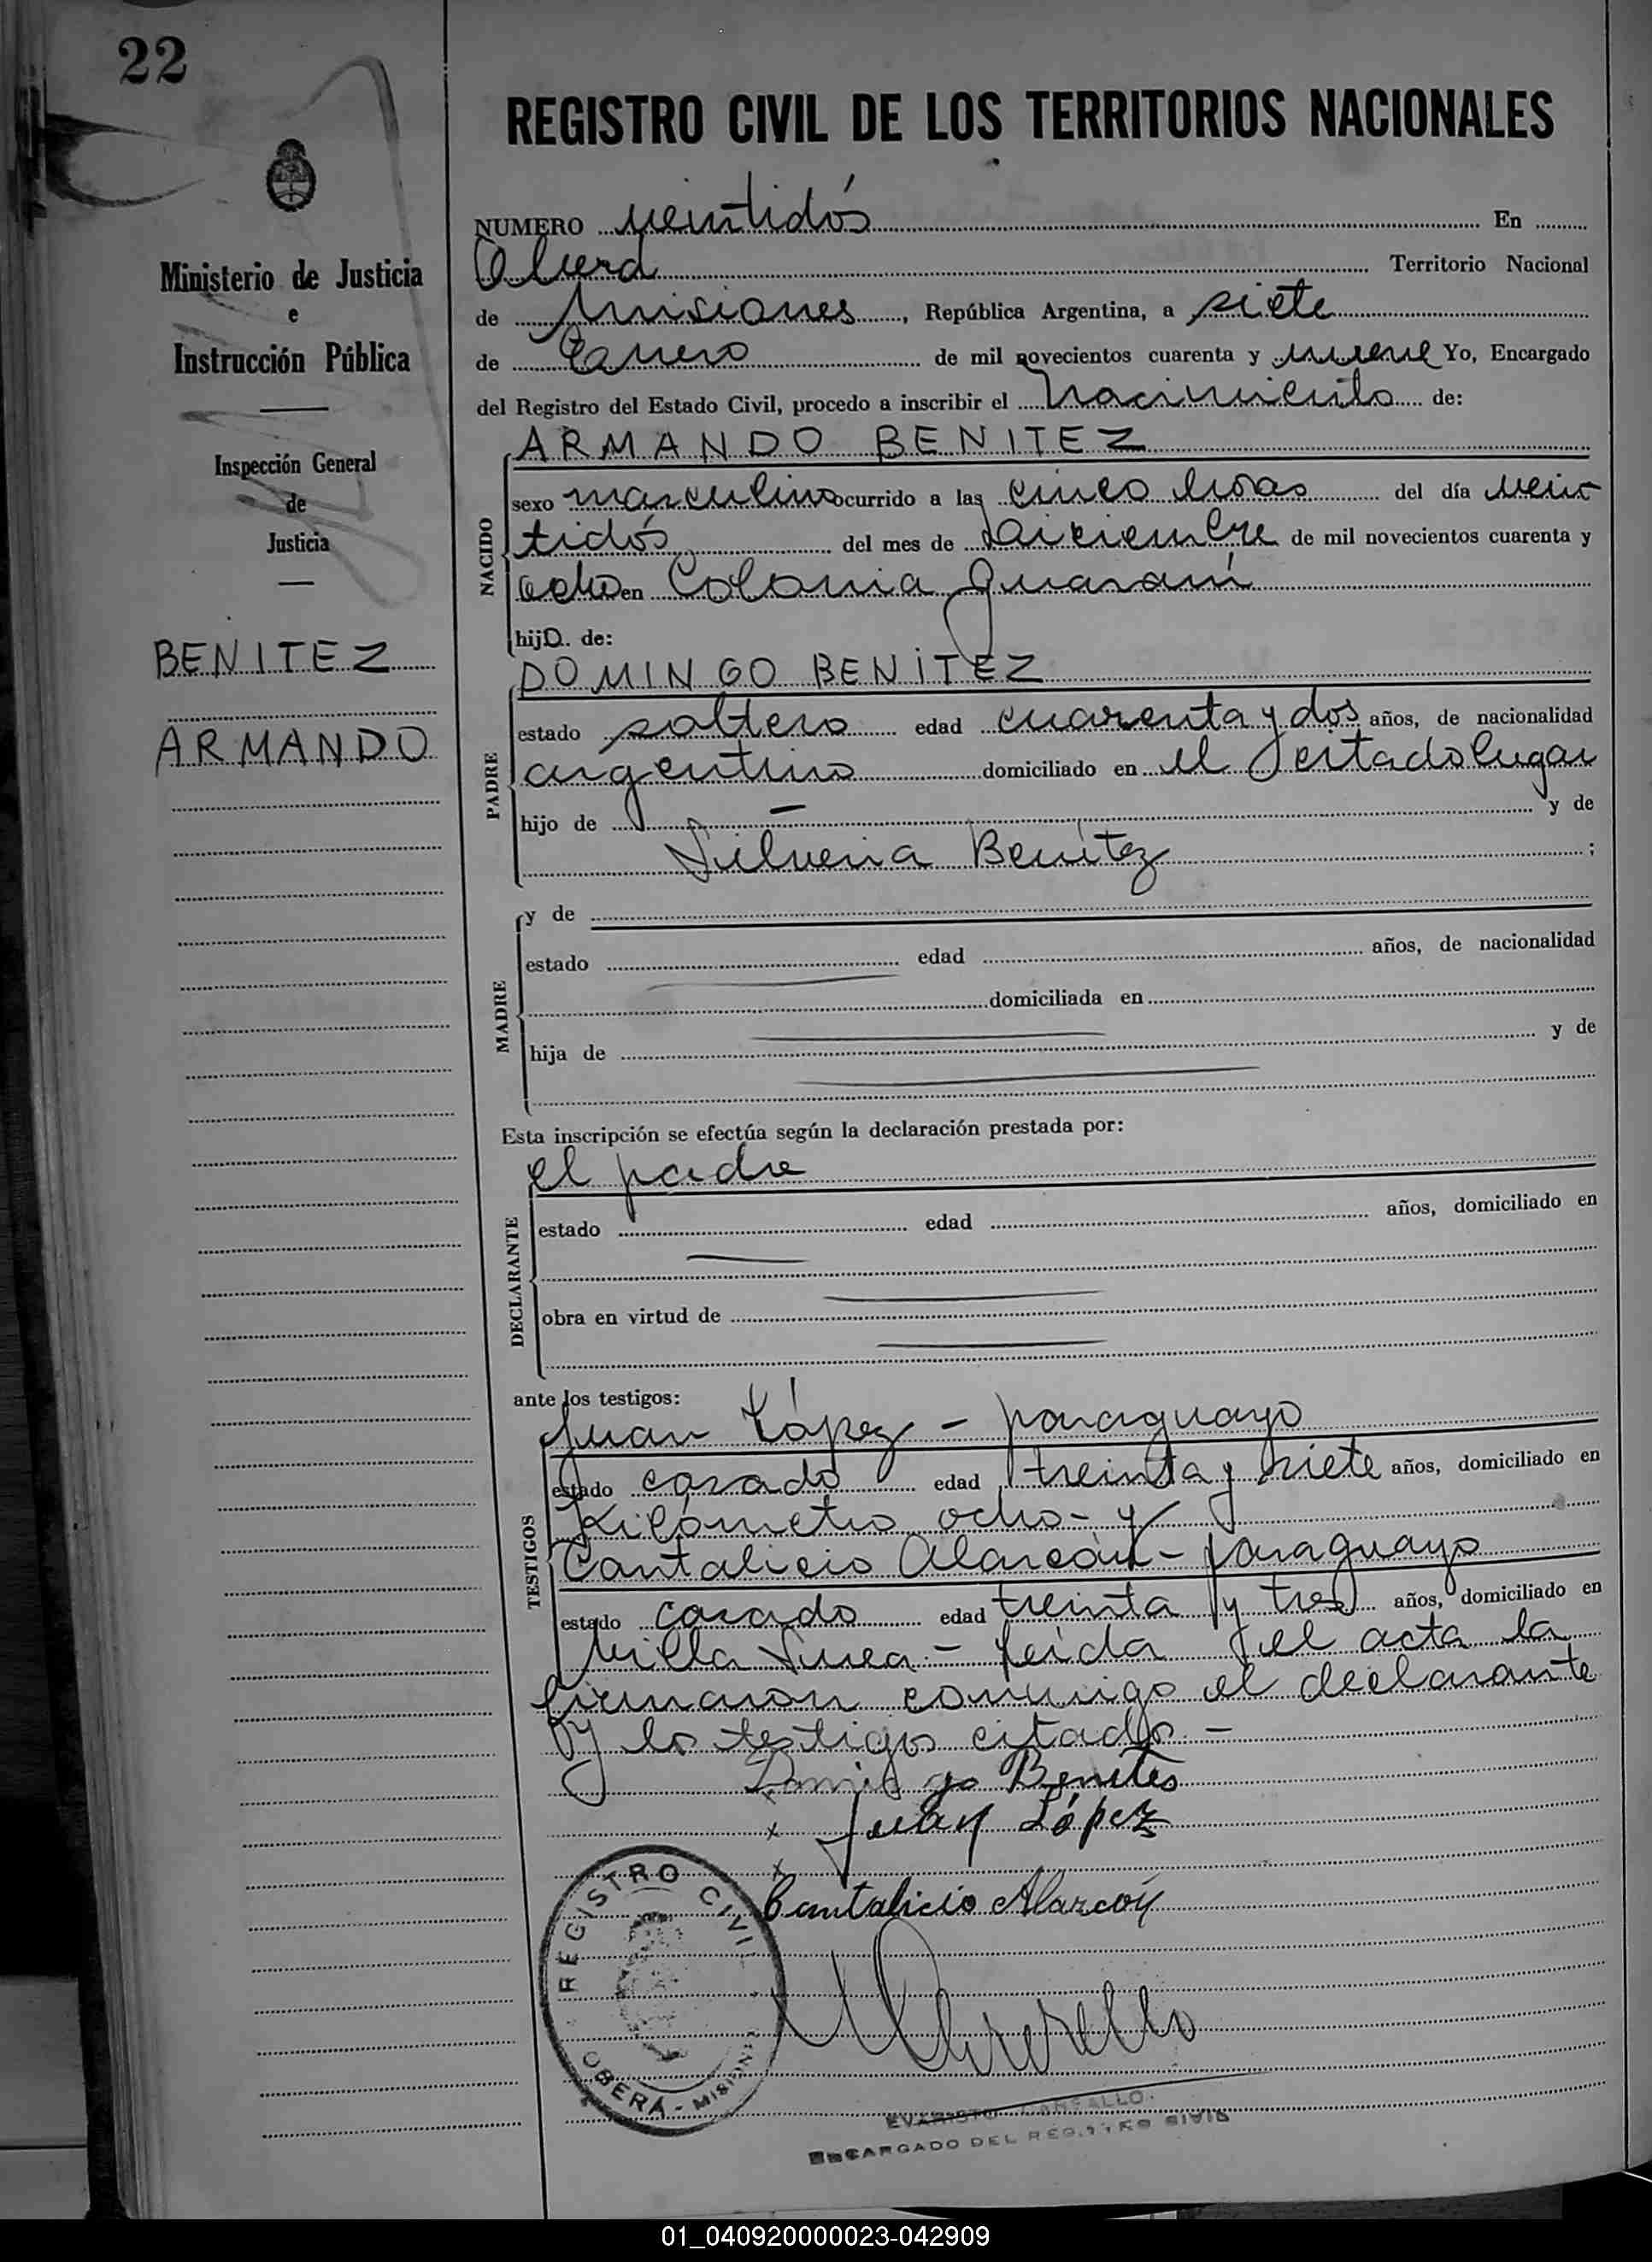 22
REGISTRO CIVIL DE LOS TERRITORIOS NACIONALES
Ministerio de Justicia
e
Instrucción Pública
Inspección General
de
Justicia
BENITEZ
ARMANDO
NUMERO veintidós En
Oberá Territorio Nacional
de Misiones, República Argentina, a siete
de Enero de mil novecientos cuarenta y nueve Yo, Encargado
del Registro del Estado Civil, procedo a inscribir el nacimiento de:
ARMANDO BENITEZ
NACIDO
sexo masculino ocurrido a las cinco horas del día vein
tidós del mes de diciembre de mil novecientos cuarenta y
ocho en Colonia Guaraní
hijo. de:
DOMINGO BENITEZ
PADRE
estado soltero edad cuarenta y dos años, de nacionalidad
argentino domiciliado en el citado lugar
hijo de — y de
Silveria Benítez ;
MADRE
y de
estado edad años, de nacionalidad
domiciliada en
hija de y de
Esta inscripción se efectúa según la declaración prestada por:
el padre
DECLARANTE
estado edad años, domiciliado en
obra en virtud de
ante los testigos:
Juan López - paraguayo
TESTIGOS
estado casado edad treinta y siete años, domiciliado en
Kilómetro ocho - y
Cantalicio Alarcón - paraguayo
estado casado edad treinta y tres años, domiciliado en
Villa - Leida el acta la
firmaron conmigo el declarante
y los testigos citados -
Domingo Benites
x Juan López
x
Cantalicio Alarcón
REGISTRO CIVIL
OBERÁ - MISIONES
EVARISTO
ENCARGADO DEL REGISTRO CIVIL
01_040920000023-042909